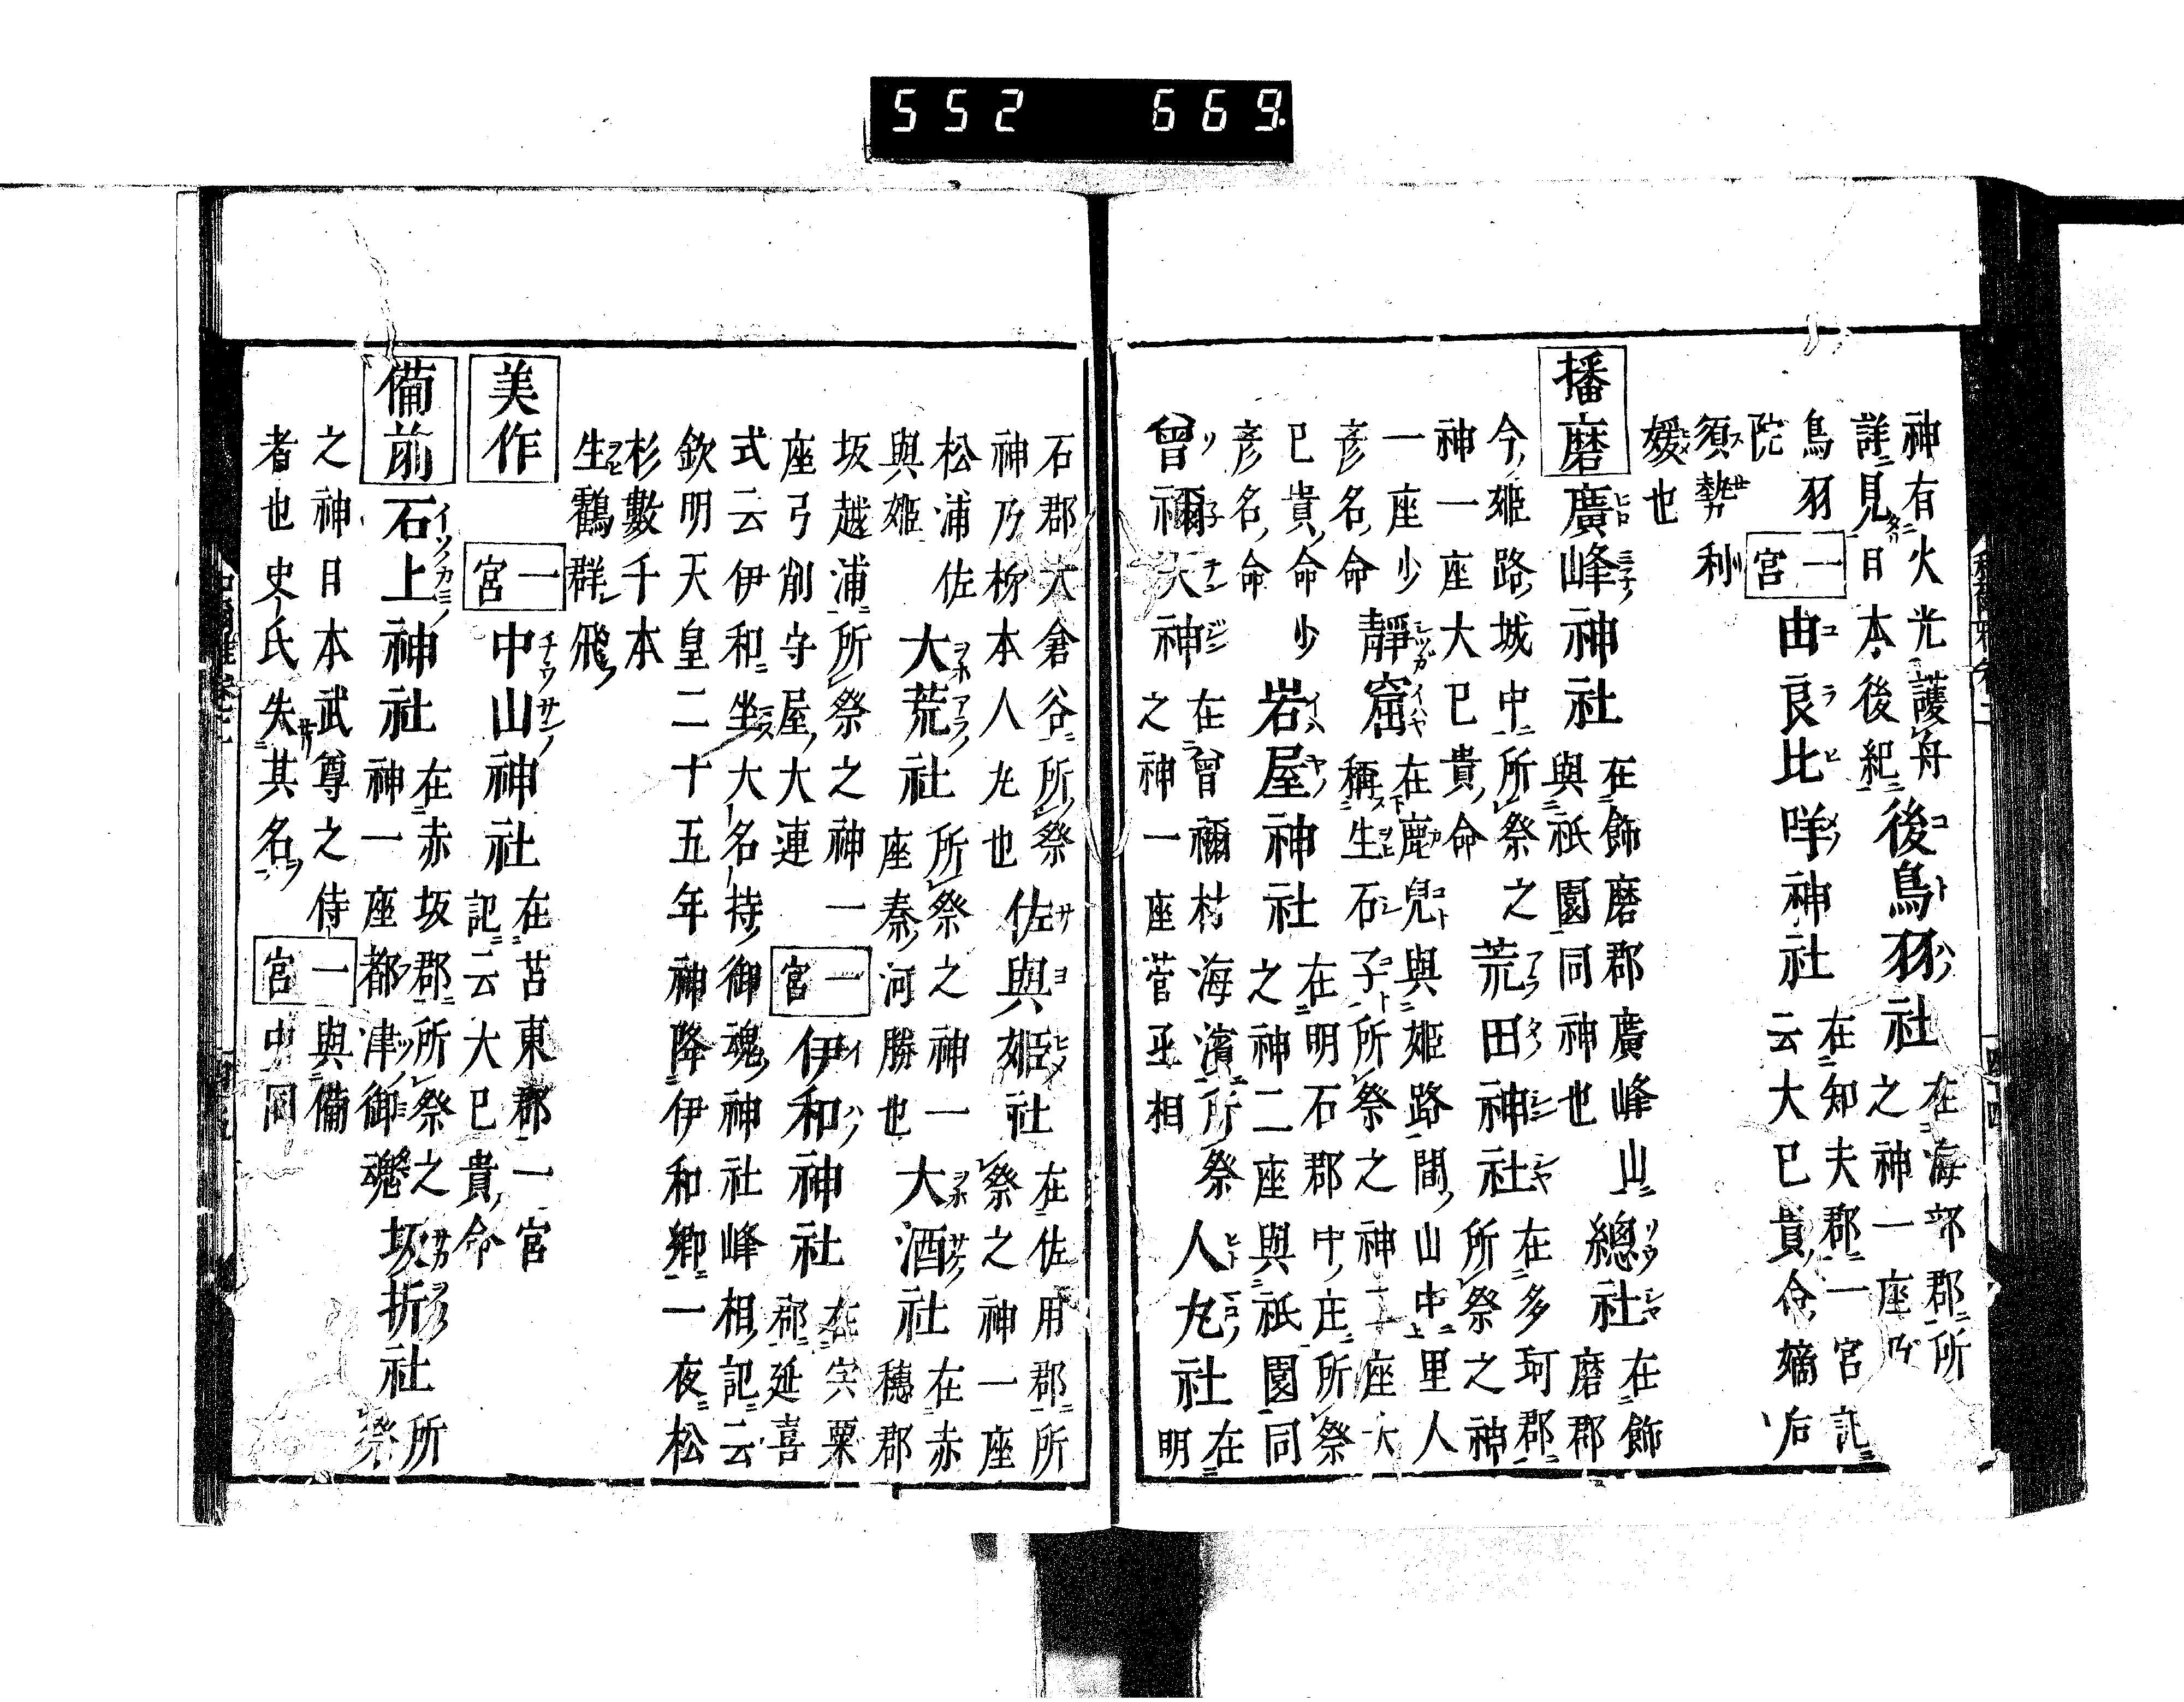 552 669
神有火光護舟
詳見日本後紀
後鳥羽社
在海部郡所
之神一座乃
鳥羽
院
一宮
由良比咩神社
在知夫郡一宮記
云大已貴命嫡后
須勢利
媛也
播磨
廣峰神社
在飾磨郡廣峰山
與祇園同神也
總社
在飾
磨郡
今姫路城中所祭之
神一座大已貴命
荒田神社
在多珂郡
所祭之神
一座少
彦名命
靜窟
在鹿兒與姫路間山中里人
稱生石子所祭之神二座大
已貴命少
彦名命
岩屋神社
在明石郡中庄所祭
之神二座與祇園同
曾禰天神
在曾禰村海濱所祭
之神一座菅丞相
人丸社
在
明
石郡大倉谷所祭
神乃柿本人丸也
佐與姫社
在佐用郡所
祭之神一座
松浦佐
與姫
大荒社
所祭之神一
座秦河勝也
大酒社
在赤
穗郡
坂越浦所祭之神一
座弓削守屋大連
一宮
伊和神社
在宍粟
郡延喜
式云伊和坐大名持御魂神社峰相記云
欽明天皇二十五年神降伊和郷一夜松
杉數千本
生鸛群飛
美作
一宮
中山神社
在苫東郡一宮
記云大已貴命
備前
石上神社
在赤坂郡所祭之
神一座都津御魂
坂折社
所
祭
之神日本武尊之侍
者也史氏失其名
一宮
與備
中同